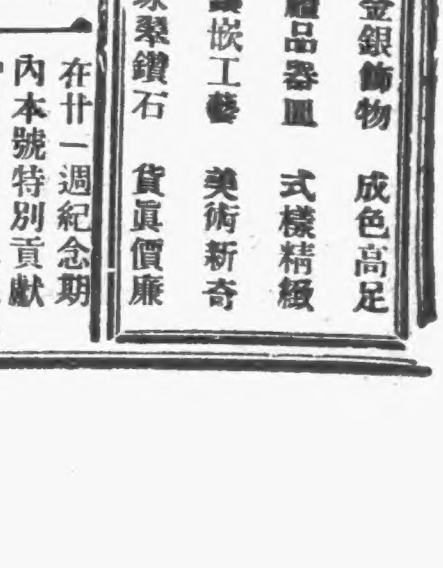 金銀飾物 成色高足
禮品器皿 式樣精緻
鑲嵌工藝 美術新奇
翠鑽石 貨眞價廉
在廿一週紀念期
內本號特別貢獻